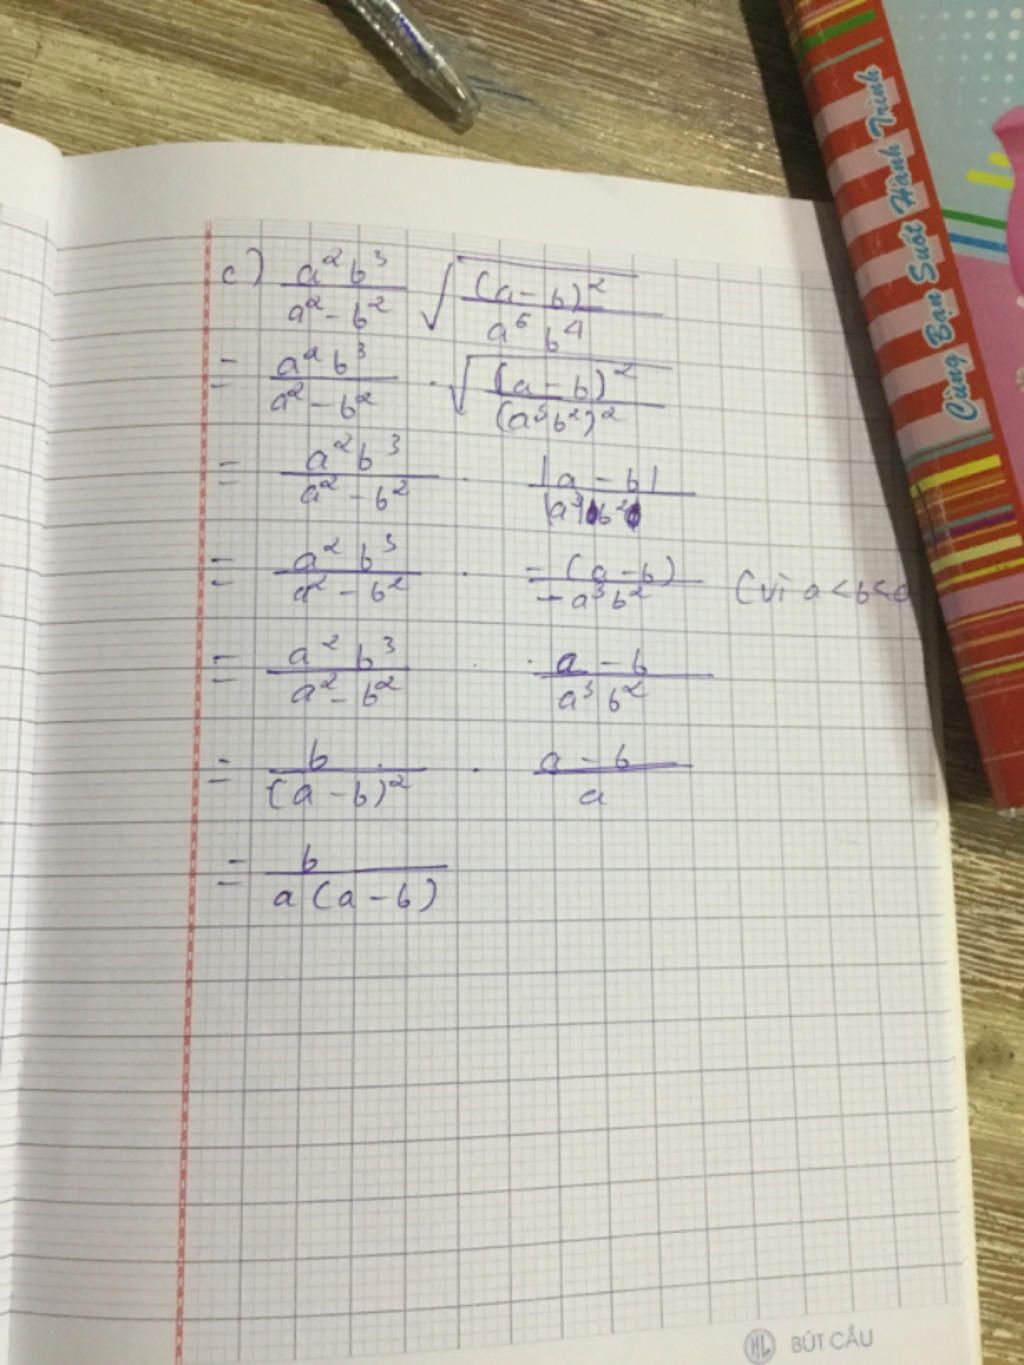 c) a²b³/(a² - b²) √((a - b)²/(a⁶b⁴))
= a²b³/(a² - b²) . √((a - b)²/(a³b²)²)
= a²b³/(a² - b²) . |a - b|/|a³b²|
= a²b³/(a² - b²) . -(a - b)/(-a³b²) (vì a < b < 0
= a²b³/(a² - b²) . (a - b)/(a³b²)
= b/(a - b)² . (a - b)/a
= b/(a(a - b))
Cùng Bạn Suốt Hành Trình
HL BÚT CẦU